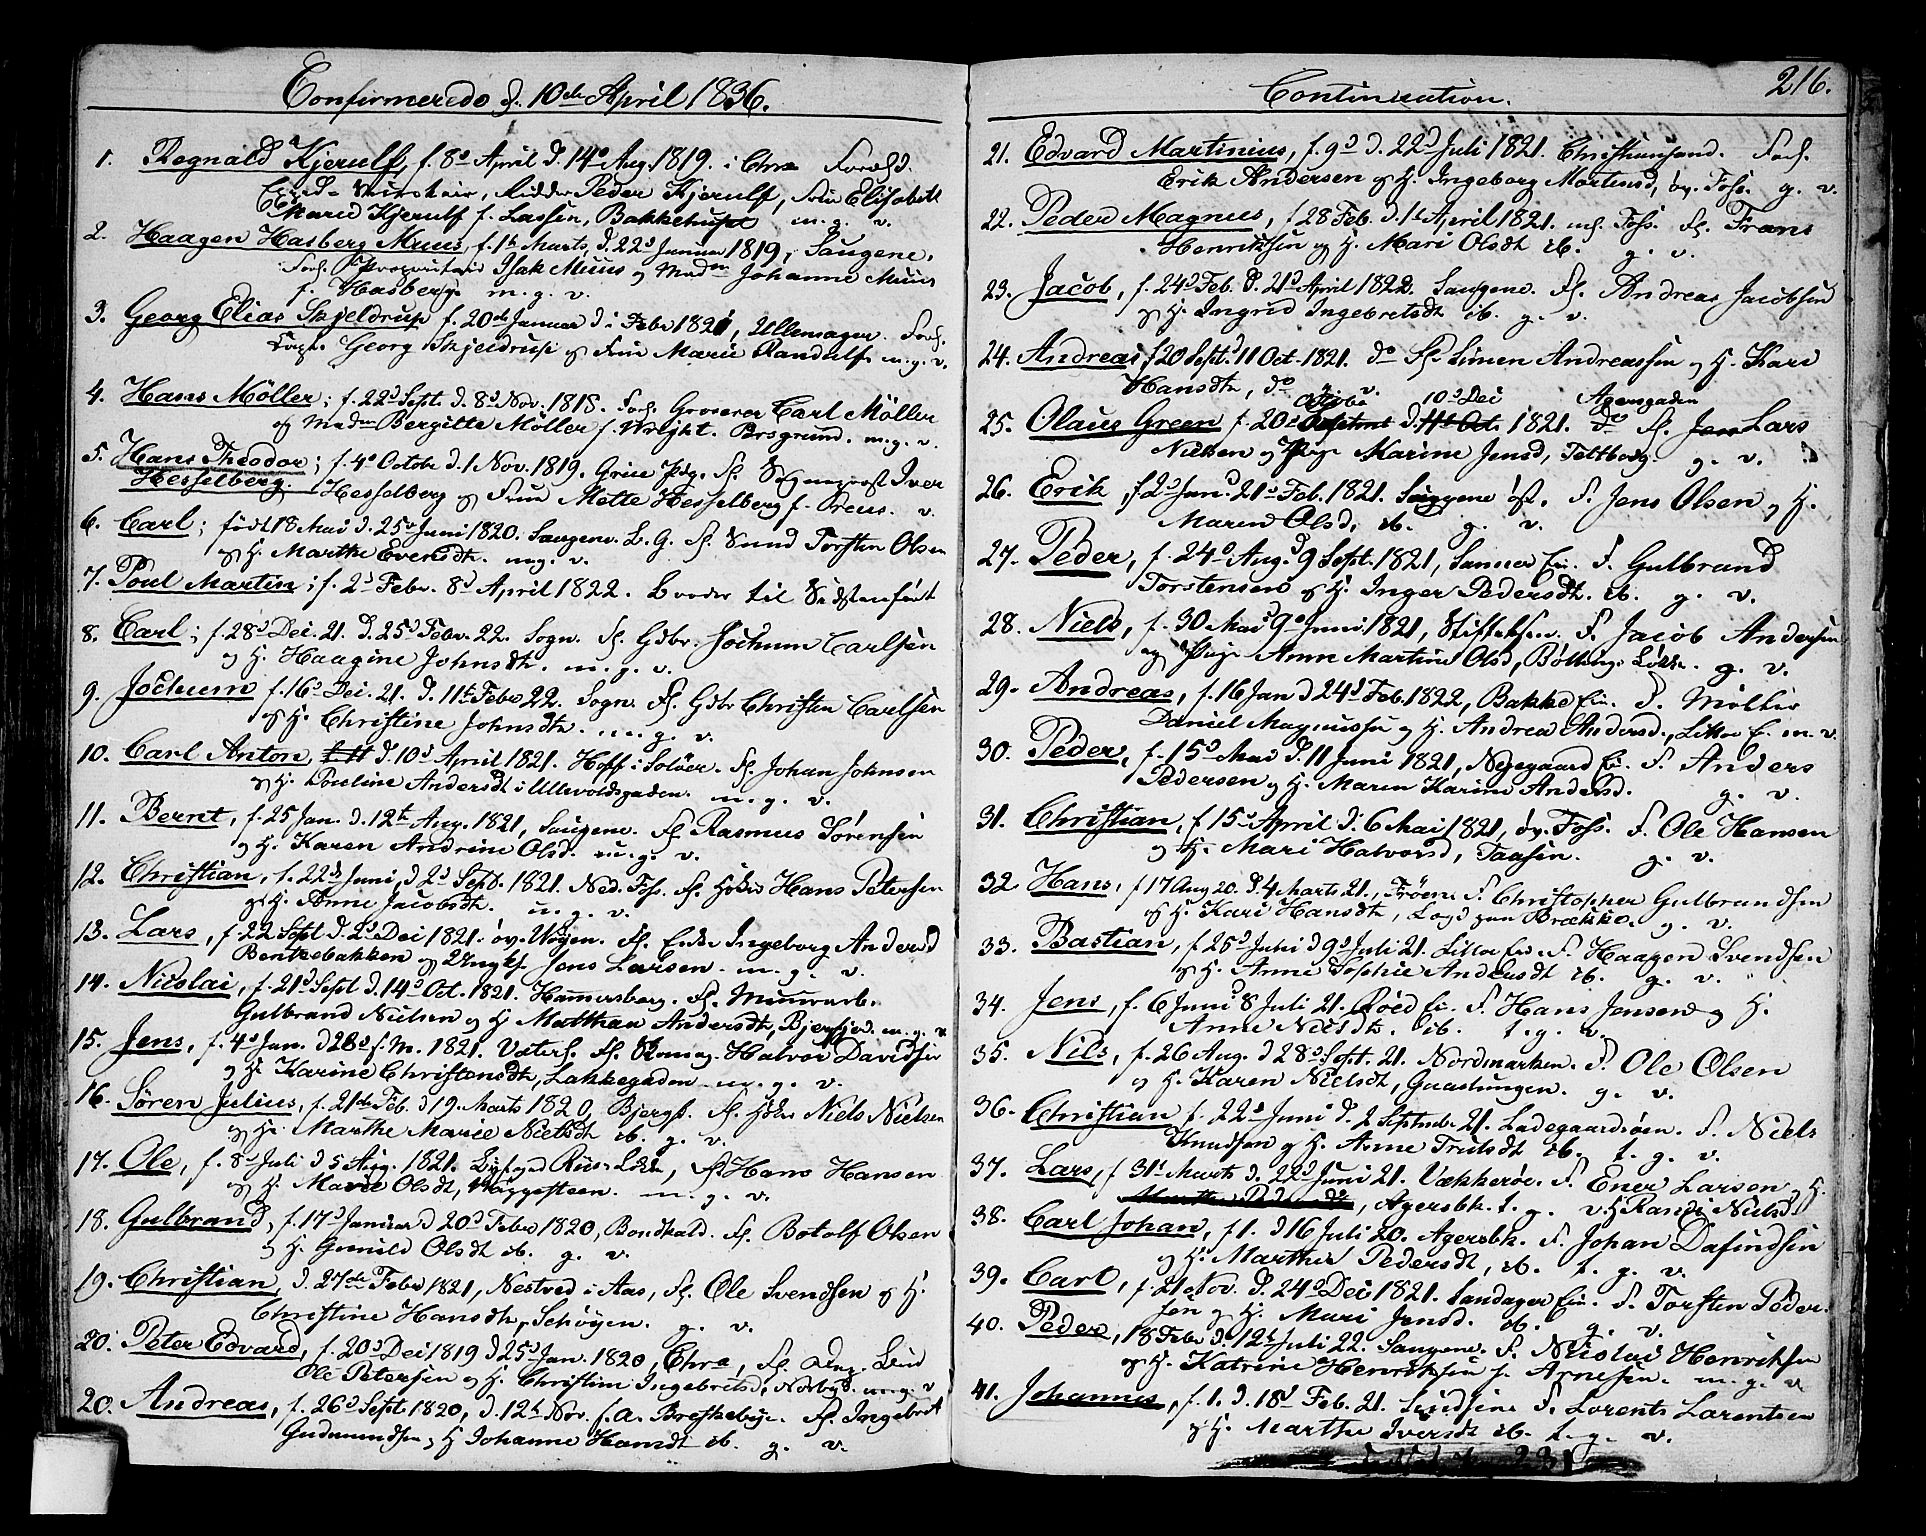 Confirmerede d. 10de April 1836.
1. Regnald Kjerulf, f. 8d April d. 14d Aug. 1819. i Chra
Peder Kjerulf, Frue Elisabeth
Marie Kjerulf f. Lassen, Bakkehuset m. g. v.
2. Haagen Hasberg Muus, f. 1t Marts, d. 22d Januar 1819, Saugene.
Isak Muus og Madm Johanne Muus
f. Hasberg. m. g. v.
3. Georg Elias Skjeldrup f. 20de Januar d. i Febr 1821, Ullensager.
Capt. Georg Skjeldrup og Frue Marie Randulf m. g. v.
4. Hans Möller; f. 22d Sept. d. 8d Nov. 1818. Grosserer Carl Möller
og Madm Bergitte Möller f. Wright. Porsgrund. m. g. v.
5. Hans Theodor; f. 4d Octobr d. 1 Nov. 1819. Grue Pdg. Sognepræst Iver
Hesselberg. Hesselberg og Frue Mette Hesselberg f. Preus. v.
6. Carl; født 18 Mai d. 25d Juni 1820. Saugene. Torsten Olsen
og H. Marthe Evensdt. mg. v.
7. Poul Martin; f. 2d Febr. 8d April 1822. Broder til Sidstanført
8. Carl; f. 28d Dec. 21. d. 25d Febr. 22. Sogn. F. Gdbr. Jochum Carlsen
og H. Haagine Johnsdt. m. g. v.
9. Jochum f. 16d Dec. 21. d. 11te Febr 22. Sogn. F. Gdbr Christen Carlsen
og H. Christine Johnsdt. m. g. v.
10. Carl Anton, d. 10d April 1821. Hoff i Solöer. F. Johan Johnsen
og H. Pouline Andersdt i Ullevoldsgaden. m. g. v.
11. Bernt, f. 25 Jan. d. 12te Aug. 1821, Saugene. F. Rasmus Sörensen
og H. Karen Andrine Olsd. m. g. v.
12. Christian, f. 22d Juni, d. 2d Sept. 1821. Ned. Foss. F. Hans Petersen
og H. Anne Jacobsdt. m. g. v.
13. Lars, f. 22 Sept d. 2d Dec 1821. öv. Vöyen. F. Enke Ingeborg Andersd
Bentzebakken og Ungk. Jens Larsen. m. g. v.
14. Nicolai, f. 21d Sept d. 14d Oct. 1821. Hammersborg. F. Muurarb.
Gulbrand Nielsen og H. Matthea Andersdt, m. g. v
15. Jens, f. 4d Jan. 1821. F. Halvor Davidsen
og H. Karine Christensdt, Lakkegaden. m. g. v.
16. Sören Julius, f. 21de Feb. d 19. Marts 1820, F. Niels Nielsen
og H. Marthe Marie Nielsdt ib. g. v.
17. Ole, f. 8d Juli d 5 Aug. 1821. F. Hans Hansen
og H. Marie Olsdt, Væggesteen. m. g. v.
18. Gulbrand, f. 17d Januar d 20d Febr 1820, F. Botolf Olsen
og H. Gunild Olsdt ib. g. v.
19. Christian, d. 27de Febr 1821, Nestved i Aas, F. Ole Svendsen og H.
Christine Hansdt, Schöyen. g. v.
20. Peter Edvard, f. 20d Dec 1819 d 25d Jan. 1820, Chra, F.
Ole Petersen og H. Christine Ingebretsd, m. g. v
20. Andreas, f. 26d Sept 1820, d. 12t Nov. F. Ingebret
Gudmundsen og H Johanne Hansdt ib. g. v.
Continuation. 216.
21. Edvard Martinius, f. 9d d. 22d Juli 1821. Christiansand.
Erik Andersen og H. Ingeborg Mortensd, öv. Foss. g. v.
22. Peder Magnus, f 28 Feb. d. 1t April 1821. ned. Foss. F. Frans
Henriksen og H. Mari Olsdt ib. g. v.
23. Jacob, f. 24d Feb. d. 21d April 1822. Saugene. F. Andreas Jacobsen
og H. Ingrid Ingebretsdt ib. g. v.
24. Andreas, f 20 Sept. 11 Oct. 1821. do F. Simen Andreassen og H. Kari
Hansdt, do g. v. 10d Dec Agersgaden
25. Olaus Green f. 20d Octobr d. 1821. do F. Lars
Nielsen og Pige Marine Jensd, Foltborg. g. v.
26. Erik, f 2d Jan. 21d Feb. 1821. Saugene F. Jens Olsen og H.
Maren Olsd, ib. g. v.
27. Peder, f. 24d Aug. d 9 Sept. 1821, Sannes F. Gulbrand
Torstensen og H. Inger Pedersdt. ib. g. v.
28. Niels, f. 30 Mai d 9d Juni 1821, Stiftelsen. F. Jacob Andersen
og Pige Anne Martine Olsd, Böltings Lökke. g. v.
29. Andreas, f. 16 Jan d 24d Feb. 1822, Bakke Ei. F. Möller
Daniel Magnussen og H. Andrea Andersd, m. v.
30. Peder, f. 15d Mai d. 11 Juni 1821, Nygaard Ei. F. Anders
Pedersen og H. Maren Karine Andersd. g. v.
31. Christian, f 15d April d. 6 Mai 1821, öv. Foss. F. Ole Hansen
og H. Mari Halvorsd, Taasen. g. v.
32 Hans, f 17 Aug 20. d. 4 Marts 21., Fröen. F. Christopher Gulbrandsen
og H. Kari Hansdt, Brække. g. v.
33. Bastian, f. 25d Juni d 9d Juli 21. Lilloe Ei. F. Haagen Svendsen
og H. Anne Sophie Andersdt ib. g. v.
34. Jens, f. 6 Juni d 8 Juli 21. Röed Ei. F. Hans Jensen og H.
Anne Nielsdt. ib. t. g. v.
35. Nils, f. 26 Aug. d 28d Sept. 21. Nordmarken. F. Ole Olsen
og H. Karen Nielsdt, Gaastungen. g. v.
36. Christian f. 22d Juni d. 2 Septembr 21. Ladegaardsöen. F. Niels
Knudsen og H. Anne Trulsdt ib. t. g. v.
37. Lars, f 31d Marts d. 22d Juni 21. Vækkeröe. F. Ener Larsen og H.
Agersbk. t. g. v. H Randi Nielsd
38. Carl Johan, f 1. d 16 Juli 20. Agersbk. F. Johan Dafindsen
og H. Marthe Pedersdt, ib. t. g. v.
39. Carl, f. 21 Nov. d. 24d Dec 1821. Sandager Ei. F. Torsten Peder-
sen og H. Mari Jensd. ib. g. v.
40. Peder, 18 Febr d. 12t Juli 22. Saugene. F. Nicolai Henriksen
og H. Katrine Henriksen f. Arnesen. m. g. v
41. Johannes, f. 1. d. 18d Feb. 21. F. Lorents Larentsen
og H. Marthe Iversdt ib. t. g. v.